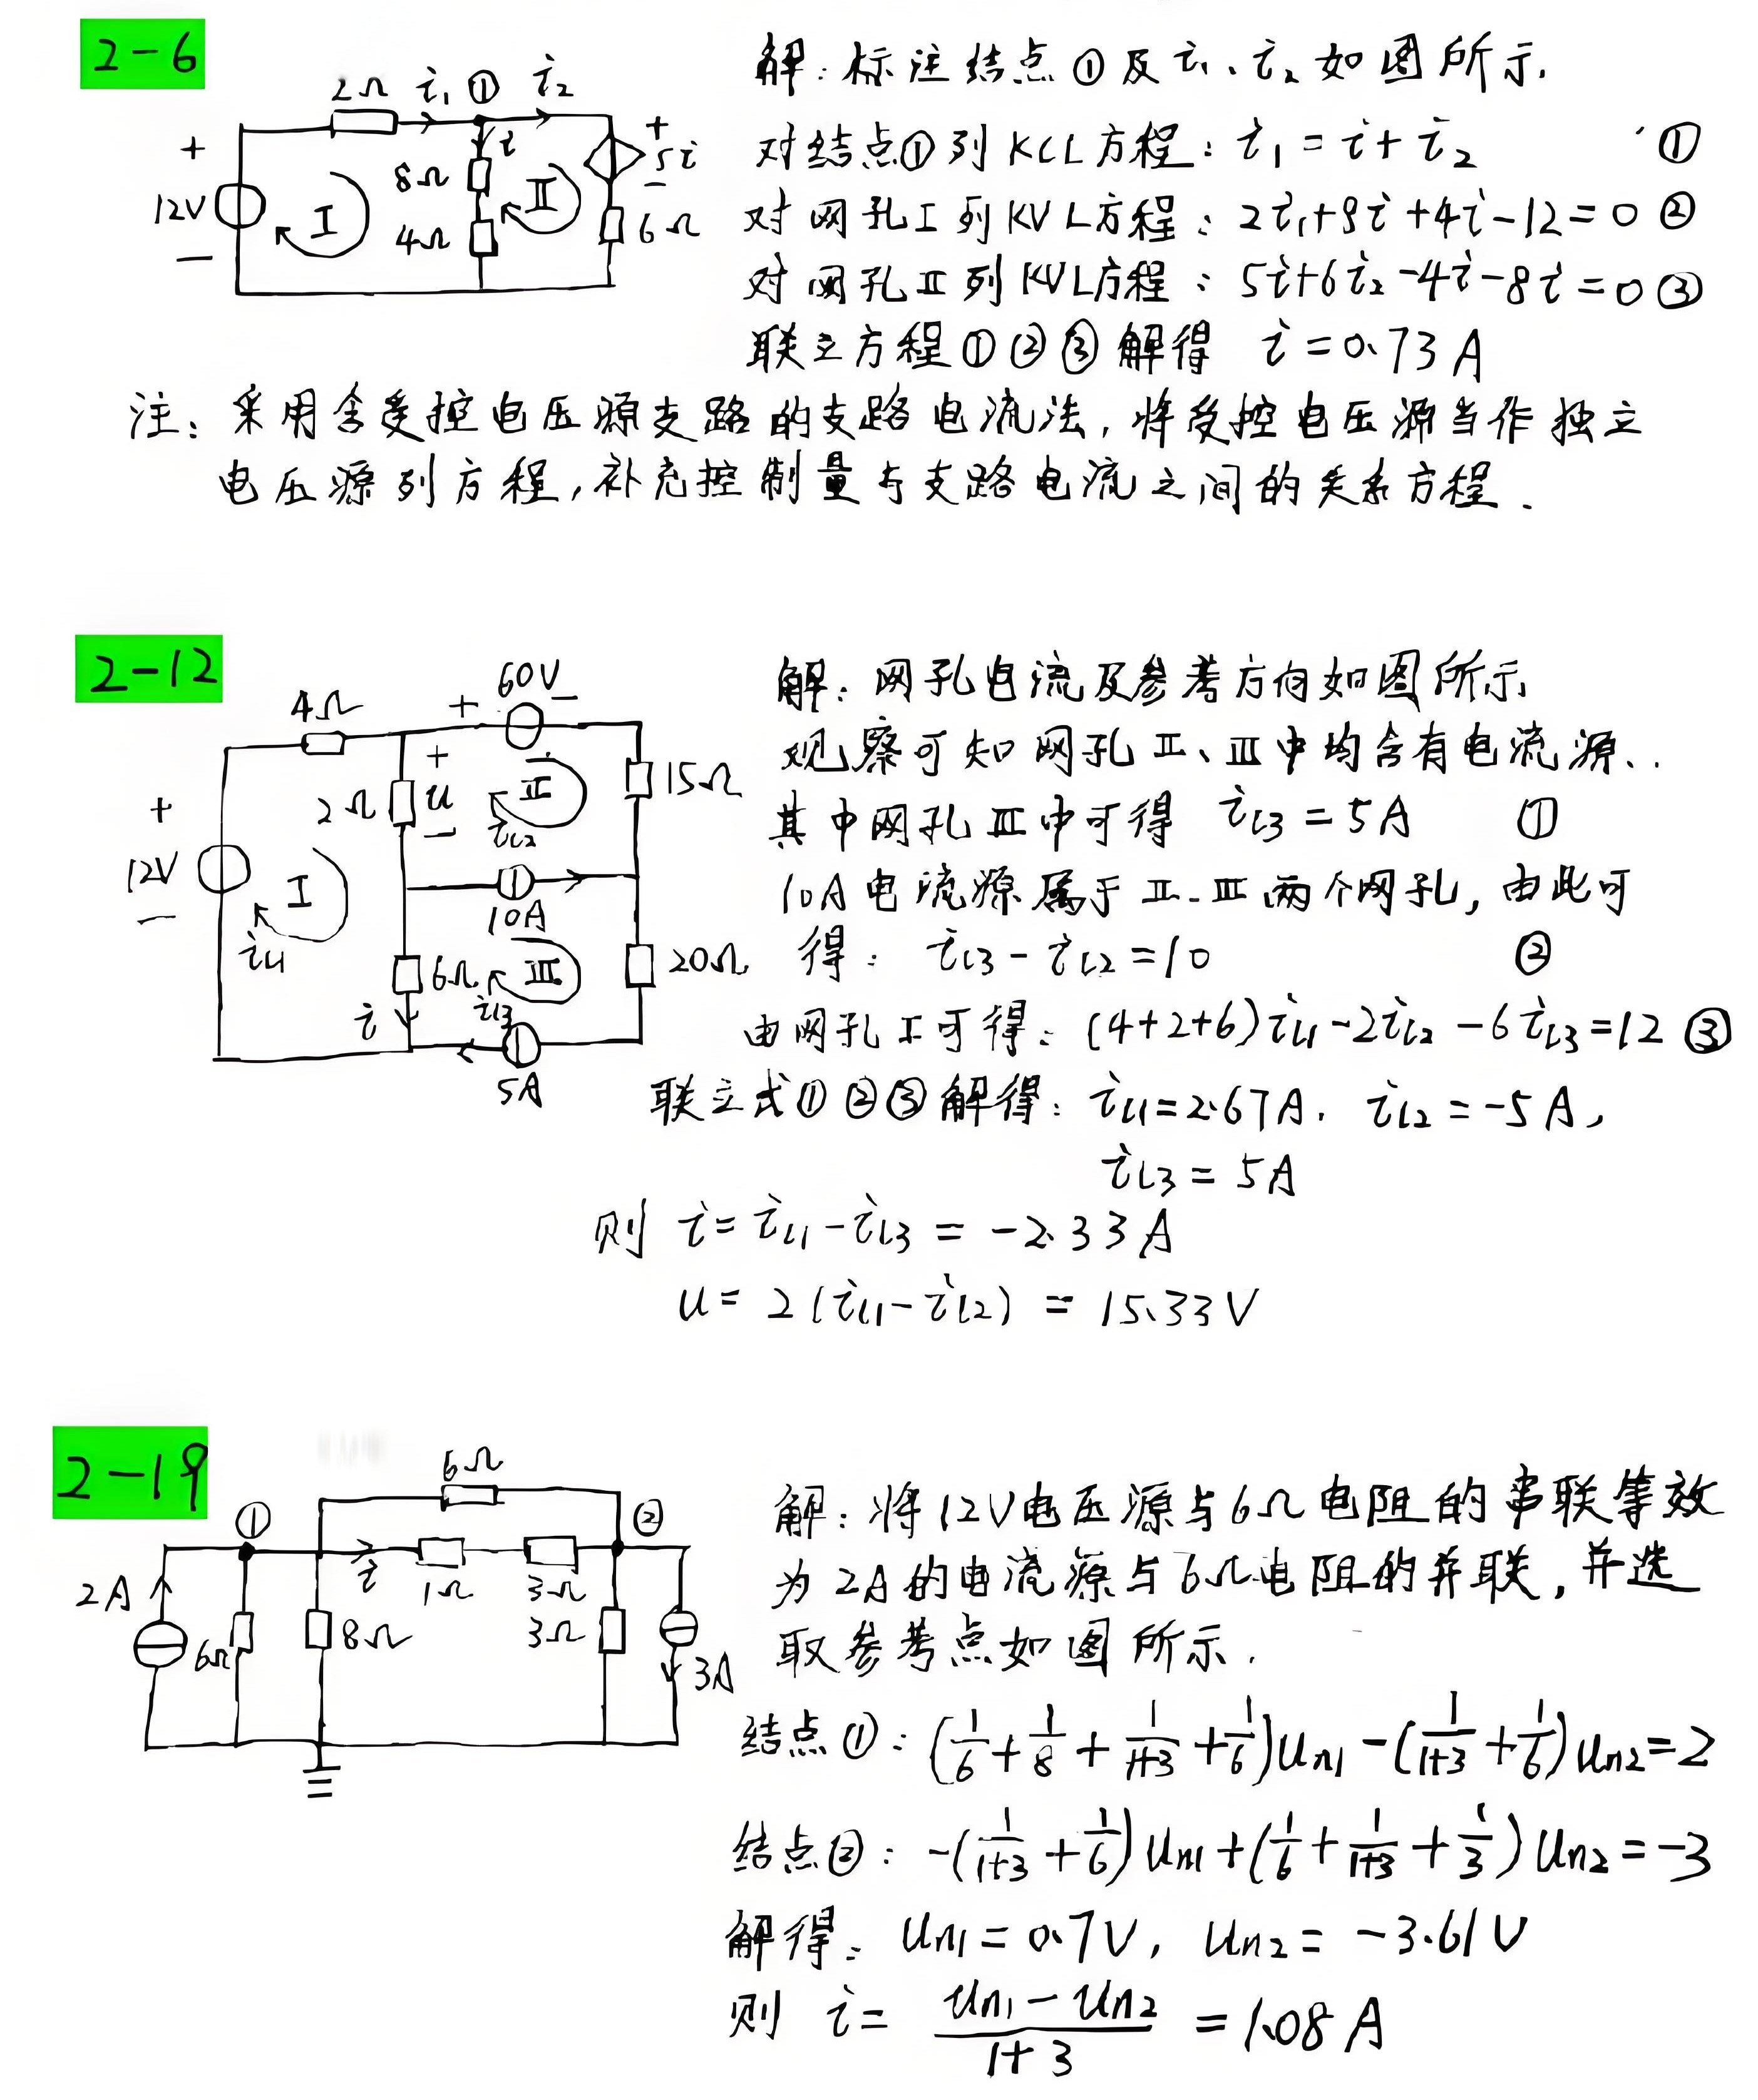 2-6
2Ω i₁ ① i₂
+ i + 5i -
8Ω
12V I II
4Ω 6Ω
-
解：标注结点①及i₁、i₂如图所示.
对结点①列KCL方程：i₁=i+i₂ ①
对网孔I列KVL方程：2i₁+8i+4i-12=0 ②
对网孔II列KVL方程：5i+6i₂-4i-8i=0 ③
联立方程①②③解得 i=0.73A
注：采用含受控电压源支路的支路电流法，将受控电压源当作独立
电压源列方程，补充控制量与支路电流之间的关系方程.
2-12
4Ω + 60V -
+ 2Ω + u - II 15Ω
iL2
12V I
10A
- iL1 6Ω III 20Ω
i iL3
5A
解：网孔电流及参考方向如图所示
观察可知网孔II、III中均含有电流源..
其中网孔III中可得 iL3=5A ①
10A电流源属于II.III两个网孔，由此可
得：iL3-iL2=10 ②
由网孔I可得：(4+2+6)iL1-2iL2-6iL3=12 ③
联立式①②③解得：iL1=2.67A. iL2=-5A,
iL3=5A
则 i=iL1-iL3=-2.33A
u=2(iL1-iL2)=15.33V
2-19
6Ω
① ②
2A i 1Ω 3Ω
6Ω 8Ω 3Ω 3A
解：将12V电压源与6Ω电阻的串联等效
为2A的电流源与6Ω电阻的并联，并选
取参考点如图所示.
结点①：(1/6+1/8+1/(1+3)+1/6)un1-(1/(1+3)+1/6)un2=2
结点②：-(1/(1+3)+1/6)un1+(1/6+1/(1+3)+1/3)un2=-3
解得：un1=0.7V, un2=-3.61V
则 i=(un1-un2)/(1+3)=1.08A